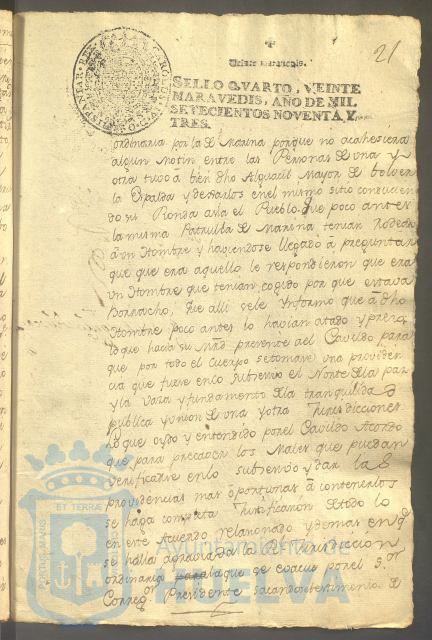 21
Veinte maravedis.
SELLO QVARTO, VEINTE
MARAVEDIS, AÑO DE MIL
SETECIENTOS NOVENTA Y
TRES.
CAROLUS
HISPANIAR. REX
ordinaria por la de Marina porque no acahesiera
algun Motin entre las Personas de una y
otra tuvo á bien dho Alguacil Mayor de bolver
la Espalda y dexarlos en el mismo sitio conducien
do su Ronda acia el Pueblo. Que poco antes
la misma Patrulla de Marina tenian Rodeado
á un Hombre y haviendose llegado á preguntar
que que era aquello le respondieron que era
un Hombre que tenian cogido por que estava
Borracho, Que alli se le Ynformo que á dho
Hombre poco antes lo havian atado y preso
lo que hacia su Mrd presente al Cavildo para
que por todo el Cuerpo se tomase una providen
cia que fuese en lo subsesivo el Norte de la paz
y la Vara y fundamento de la tranquilidad
publica y union de una y otra Jurisdicciones
Lo que oydo y entendido por el Cavildo Acordo
que para precaver los Males que puedan
verificarse en lo subsesivo y dar las
providencias mas oportunas á contenerlos
se haga completa Justificacion de todo lo
en este Acuerdo relacionado y demas en q.
se halla agraviada la R. Jurisdiccion
ordinaria la que se evacue por el S.or
Correg.or Presidente sacandose testimonio de
PORTUS MARIS ET TERRAE
Ayuntamiento de
HUELVA